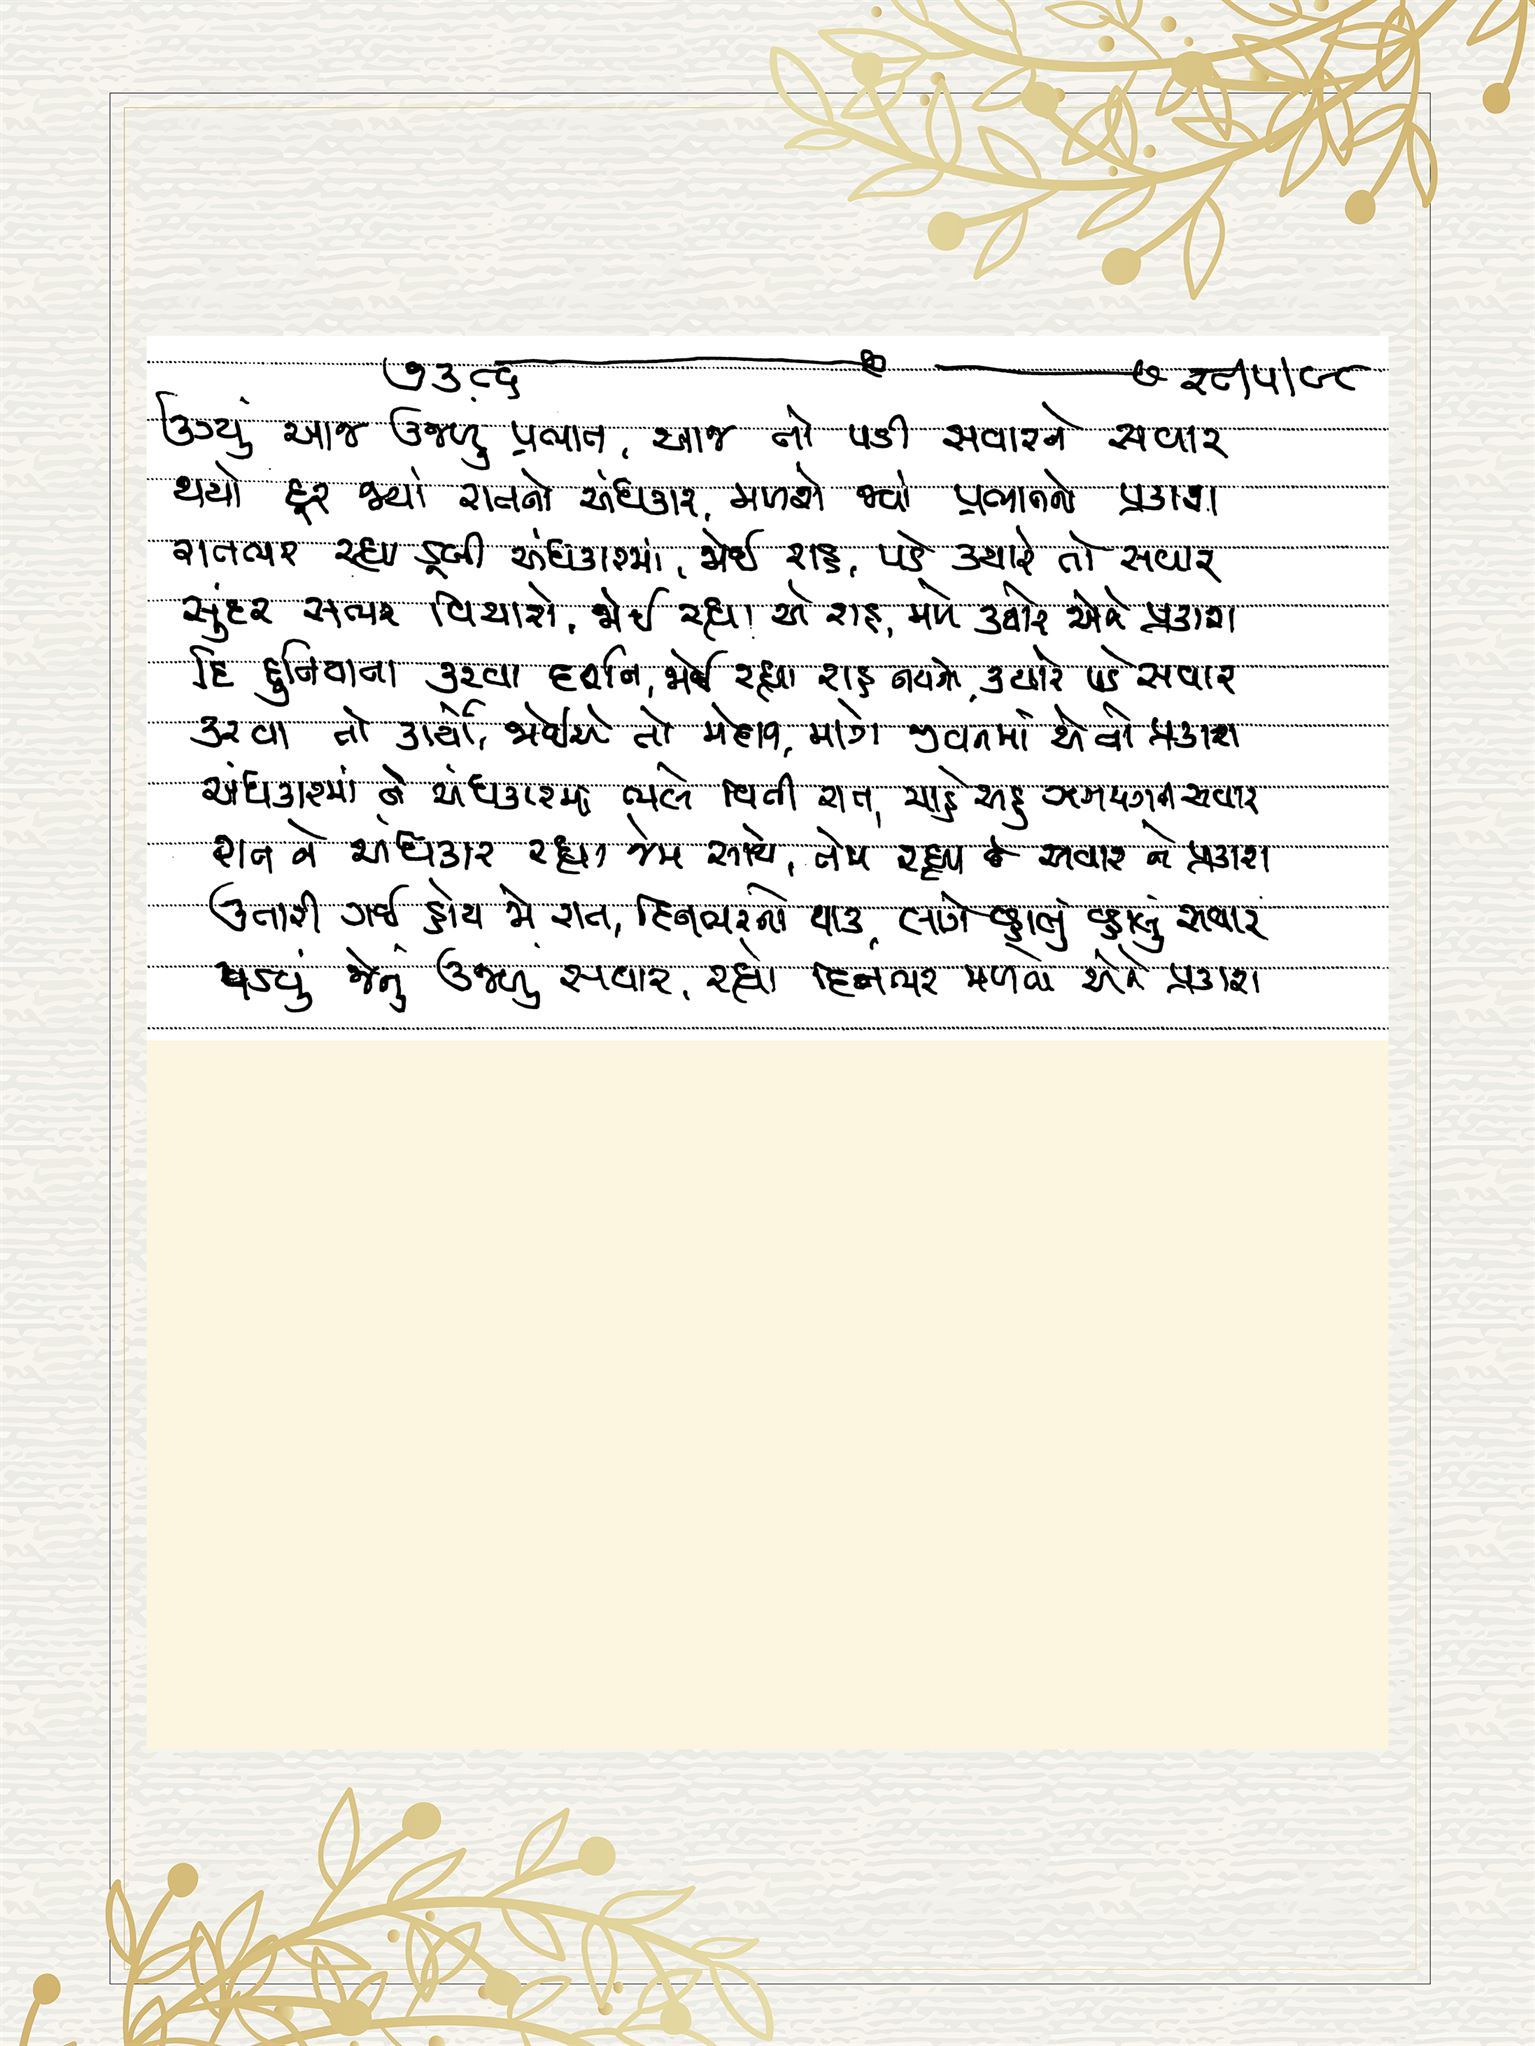 ૭૩૮૬ ૨૮/૫/૯૮
ઉગ્યું આજ ઉજળું પ્રભાત, આજ તો પડી સવારને સવાર
થયો દૂર જ્યાં રાતનો અંધકાર, મળશે જ્યાં પ્રભાતનો પ્રકાશ
રાતભર રહ્યા ડૂબી અંધકારમાં, જોઈ રાહ, પડે ક્યારે તો સવાર
સુંદર સભર વિચારો, જોઈ રહ્યા એ રાહ, મળે ક્યારે એને પ્રકાશ
દિ દુનિયાના કરવા દર્શન, જોઈ રહ્યા રાહ નયનો, ક્યારે પડે સવાર
કરવા તો કાર્યો, જોઈએ તો મહાન, માગે જીવનમાં એ તો પ્રકાશ
અંધકારમાં ને અંધકારમાં ભલે વિતી રાત, ચાહે સહુ ઝગમગતી સવાર
રાત ને અંધકાર રહ્યા જેમ સાથે, તેમ રહ્યા છે સવાર ને પ્રકાશ
ઉતારી ગઈ હોય જો રાત, દિનભરનો થાક, લાગે વ્હાલું વ્હાલું સવાર
પડ્યું જેનું ઉજળું સવાર, રહ્યો દિનભર મળતો એને પ્રકાશ